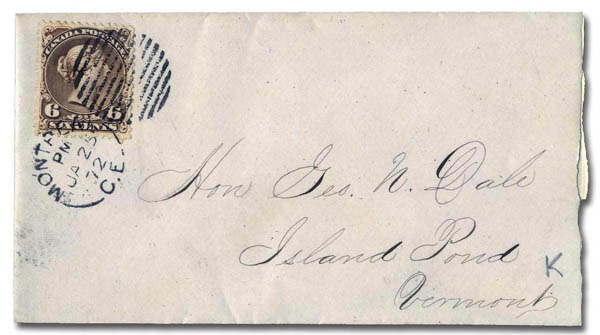 CANADA POSTAGE
6 6
SIX CENTS
MONTR
PM
JA 25
72
C.E.
Hon Geo. N. Dale
Island Pond
Vermont
K